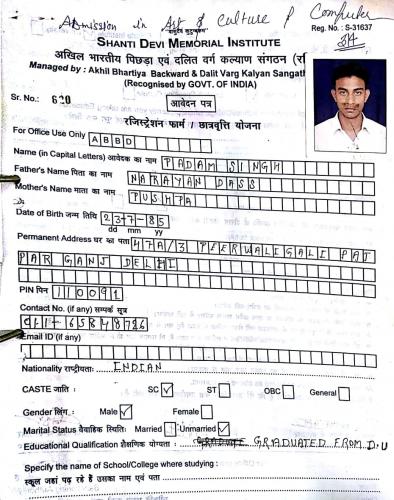 Admission in Art & culture & Computer
"वसुधैव कुटुम्बकम्"
Reg. No.: S-31637
SHANTI DEVI MEMORIAL INSTITUTE
अखिल भारतीय पिछड़ा एवं दलित वर्ग कल्याण संगठन (रजि
Managed by : Akhil Bhartiya Backward & Dalit Varg Kalyan Sangath
(Recognised by GOVT. OF INDIA)
Sr. No.: 620
आवेदन पत्र
रजिस्ट्रेशन फार्म / छात्रवृत्ति योजना
For Office Use Only ABBD
Name (in Capital Letters) आवेदक का नाम PADAM SINGH
Father's Name पिता का नाम NARAYAN DASS
Mother's Name माता का नाम PUSHPA
Date of Birth जन्म तिथि 23-7-85
dd mm yy
Permanent Address घर का पता 47A/3 PEERWALIGALI PAT
PAR GANJ DELHI
PIN पिन 110091
Contact No. (if any) सम्पर्क सूत्र
011-65848726
Email ID (if any)
Nationality राष्ट्रीयताः INDIAN
CASTE जाति : SC ✓ ST OBC General
Gender लिंग : Male ✓ Female
Marital Status वैवाहिक स्थिति: Married Unmarried ✓
Educational Qualification शैक्षणिक योग्यता : GRADUATED FROM D.U
Specify the name of School/College where studying :
स्कूल जहां पढ़ रहे हैं उसका नाम एवं पता